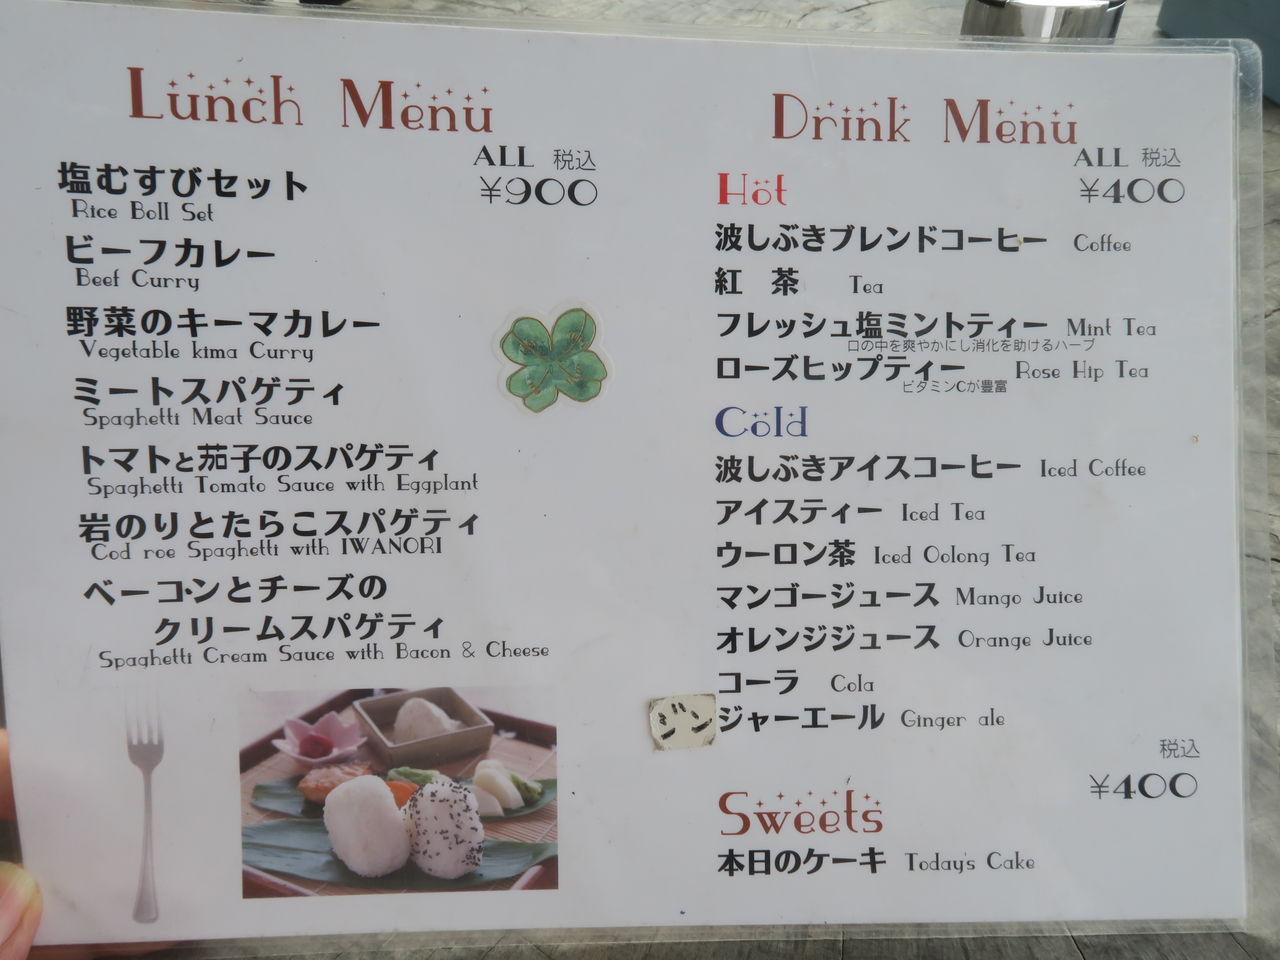 Lunch Menu
ALL 税込
¥900
塩むすびセット
Rice Boll Set
ビーフカレー
Beef Curry
野菜のキーマカレー
Vegetable kima Curry
ミートスパゲティ
Spaghetti Meat Sauce
トマトと茄子のスパゲティ
Spaghetti Tomato Sauce with Eggplant
岩のりとたらこスパゲティ
Cod roe Spaghetti with IWANORI
ベーコンとチーズの
クリームスパゲティ
Spaghetti Cream Sauce with Bacon & Cheese
Drink Menu
ALL 税込
¥400
Hot
波しぶきブレンドコーヒー Coffee
紅 茶 Tea
フレッシュ塩ミントティー Mint Tea
口の中を爽やかにし消化を助けるハーブ
ローズヒップティー Rose Hip Tea
ビタミンCが豊富
Cold
波しぶきアイスコーヒー Iced Coffee
アイスティー Iced Tea
ウーロン茶 Iced Oolong Tea
マンゴージュース Mango Juice
オレンジジュース Orange Juice
コーラ Cola
ジンジャーエール Ginger ale
税込
¥400
Sweets
本日のケーキ Today's Cake